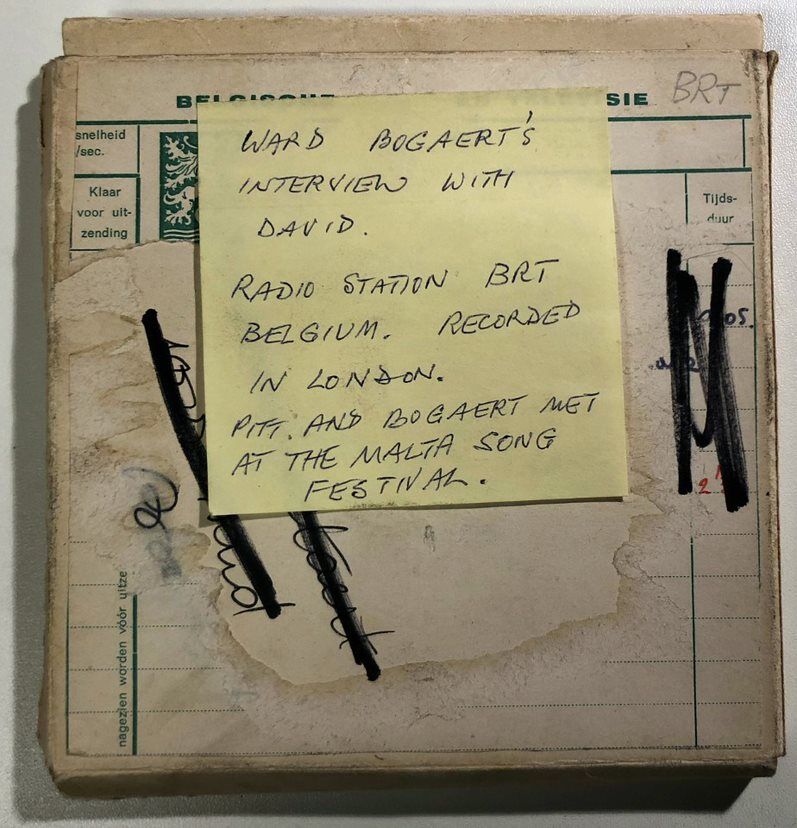 SIE BRT
snelheid
/sec.
Klaar
voor uit-
zending
Tijds-
duur
WARD BOGAERT'S
INTERVIEW WITH
DAVID.
RADIO STATION BRT
BELGIUM. RECORDED
IN LONDON.
PITT. AND BOGAERT MET
AT THE MALTA SONG
FESTIVAL.
nagezien worden vóór uitze